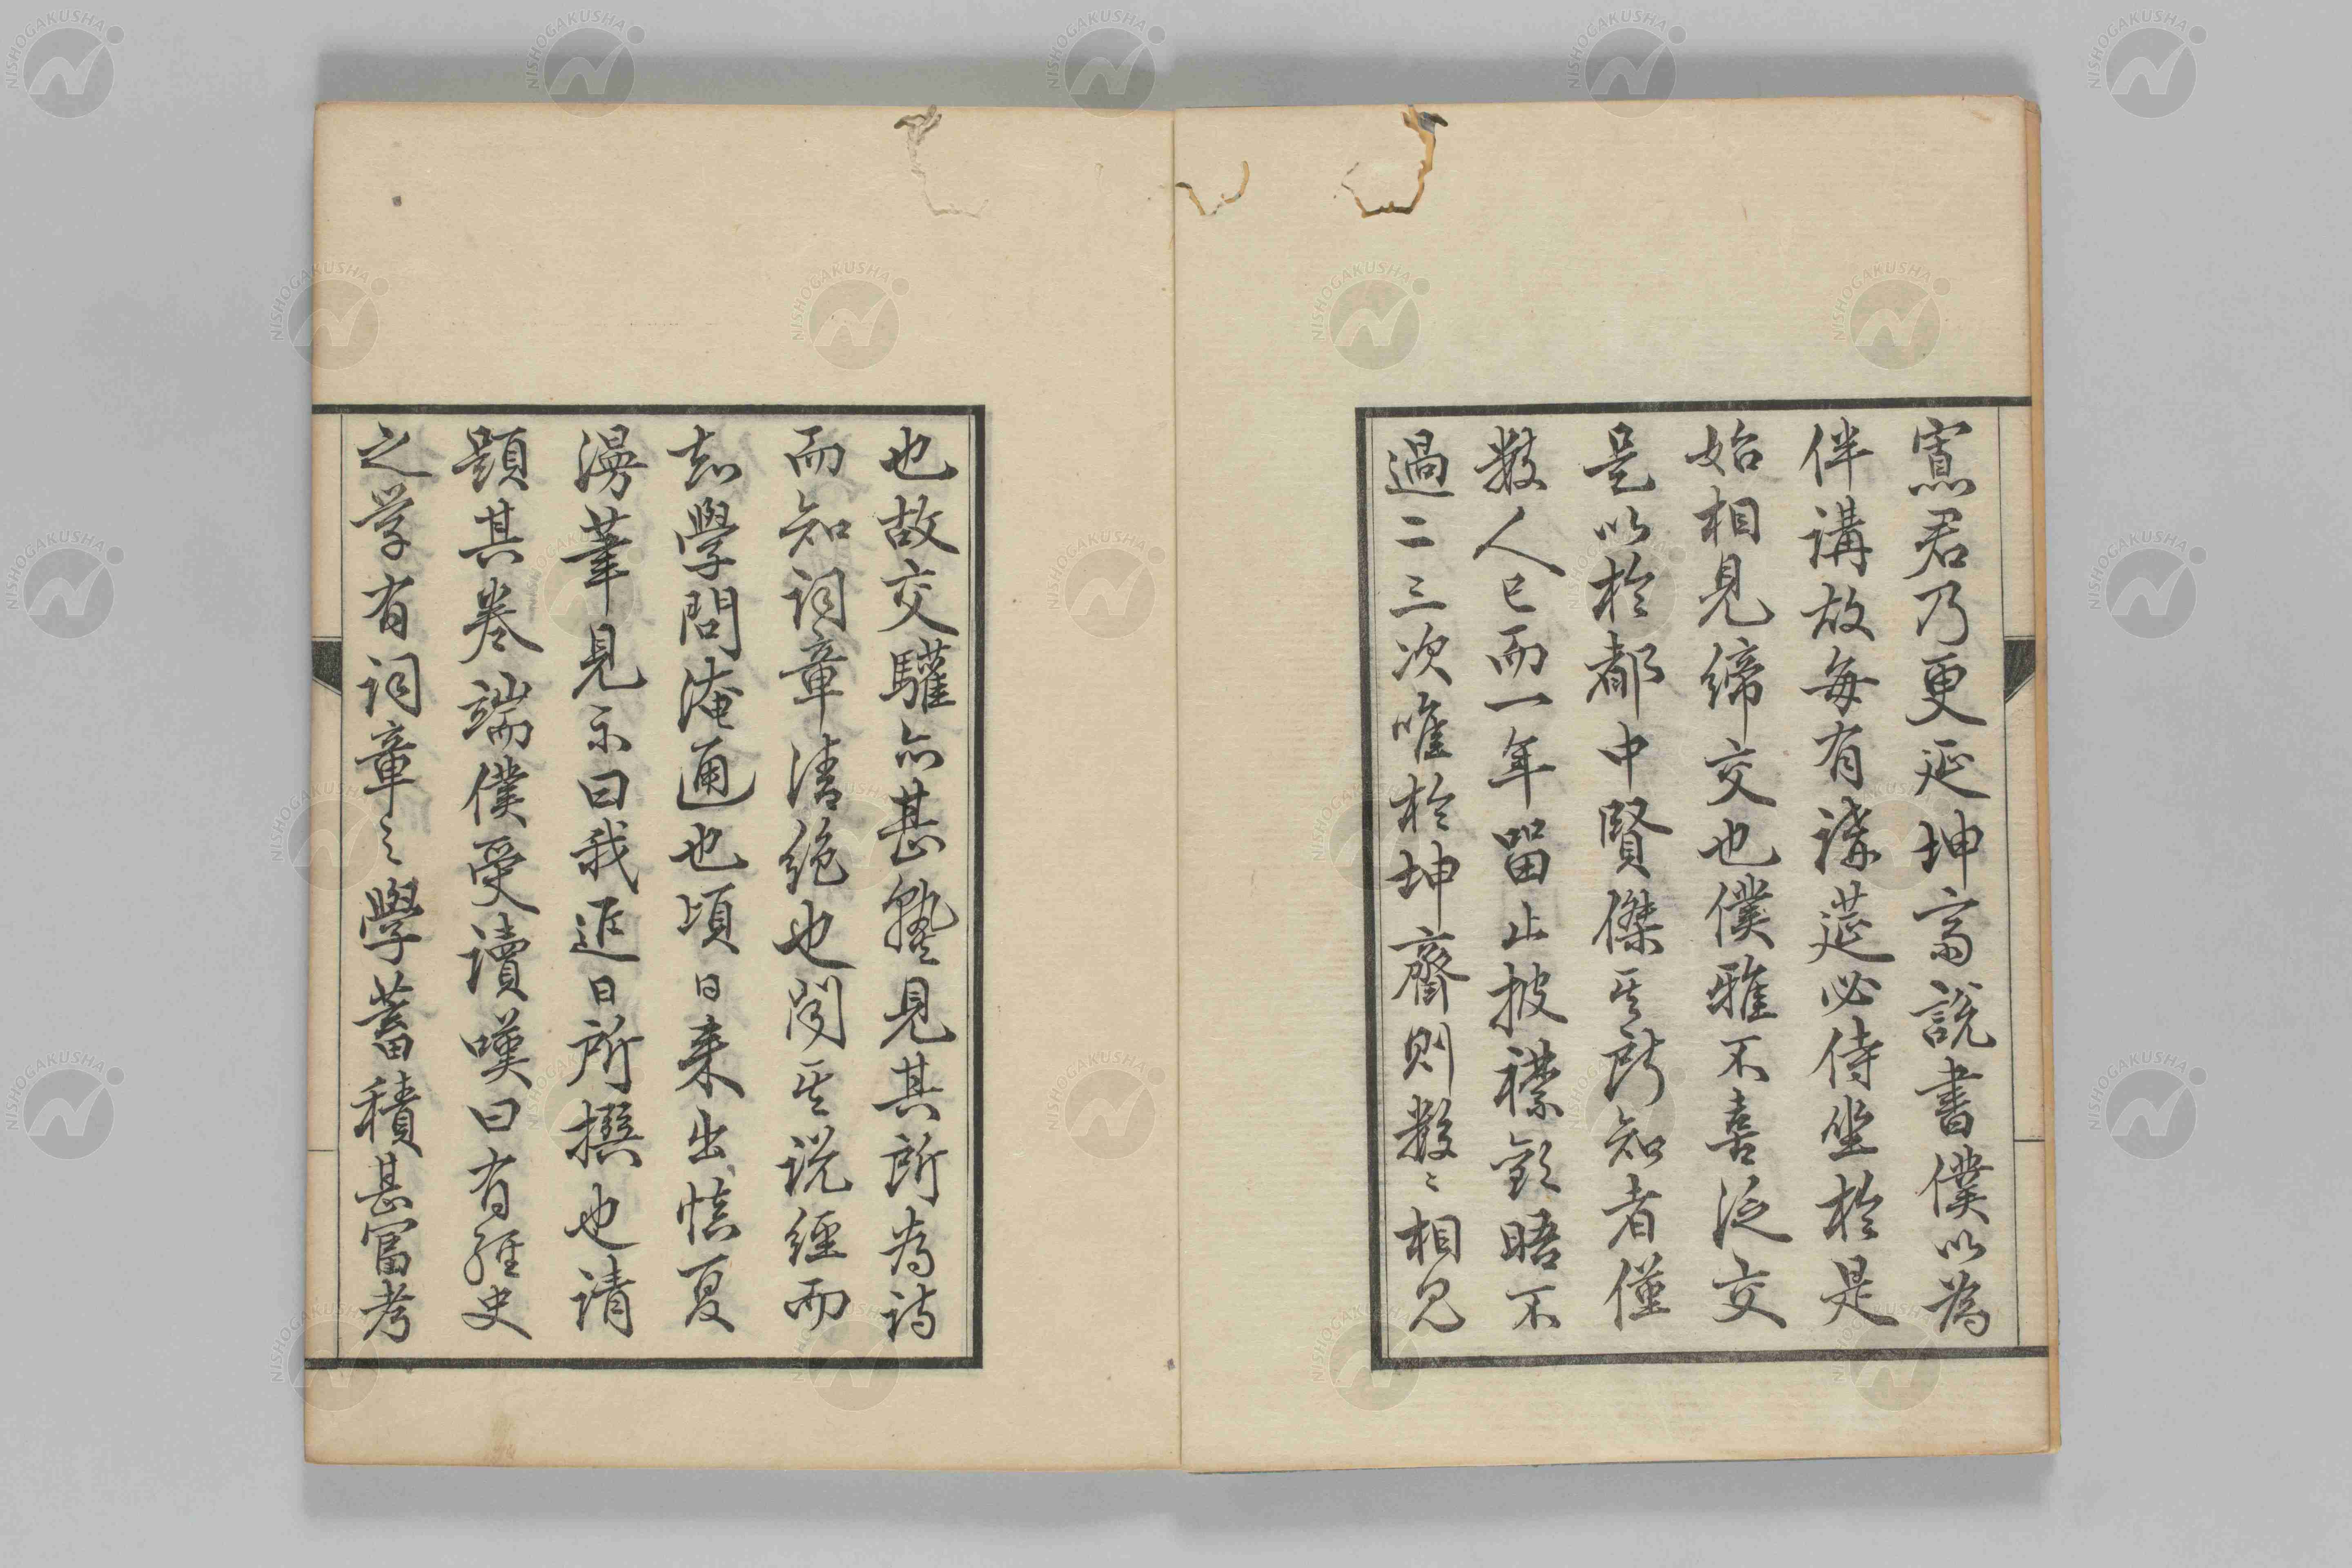 寡君乃更延坤齋説書僕以為
伴講故每有講莚必侍坐於是
始相見締交也僕雅不喜泛交
是以於都中賢傑其所知者僅
數人已而一年留止披襟欵晤不
過二三次唯於坤齋則數〻相見
也故交驩亦甚塾見其所為詩
而知詞章清絶也聞其説經而
知學問淹通也頃日来出慎夏
漫筆見示曰我近日所撰也請
題其卷端僕受讀嘆曰有經史
之学有詞章之學蓄積甚富考
NISHOGAKUSHA